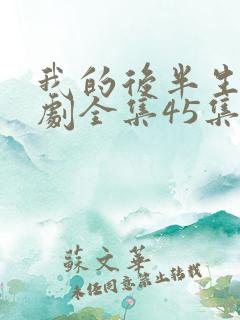 我的後半生
劇全集45集
蘇文華
未經同意禁止轉載